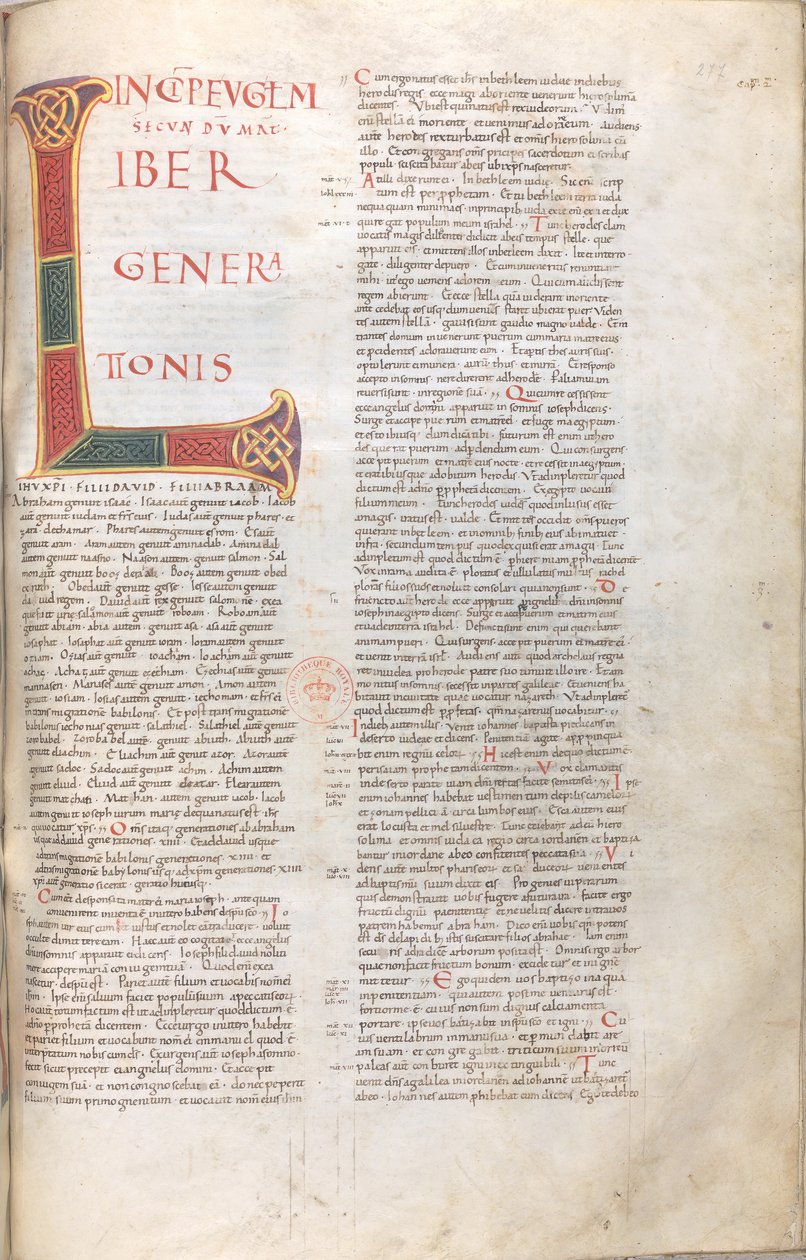 INCIPEVGLM
SECUNDUMMAT·
LIBER
GENERA
TIONIS
IHUXPI · FILII DAVID · FILII ABRAAM
Abraham genuit isaac · Isaac aut genuit iacob · Iacob
aut genuit iudam et frs eius · Iudas aut genuit phares · et
zara · dechamar · Phares autem genuit esrom · Esraut
genuit aram · Aram autem genuit aminadab · Aminadab
autem genuit naason · Naason autem · genuit salmon · Sal
mon aut genuit booz de · Booz autem genuit obed
ex ruth · Obed aut genuit gesse · Iesse autem genuit
dauid regem · Dauid aut rex genuit salomone · exea
que fuit urie · salamon aut genuit roboam · Roboam aut
genuit abiam · abia autem · genuit asa · asa aut genuit
iosaphat · Iosaphat aut genuit ioram · Ioram autem genuit
oziam · Ozias aut genuit · ioacham · Ioacham aut genuit
achaz · Achaz aut genuit ezechiam · Ezechias aut genuit
mannasen · Manases aute genuit amon · Amon autem
genuit · iosiam · Iosias autem genuit · iechoniam · et frs ei
in transmigratione babilonis · Et post transmigratione
babilonis iechonias genuit · salathiel · Salathiel aute genuit
zorobabel · Zorobabel aute · genuit abiuth · Abiuth aute
genuit eliachim · Eliachim aut genuit azor · Azor aute
genuit sadoc · Sadoc aut genuit achim · Achim autem
genuit eliud · Eliud aut genuit eleatar · Elear autem
genuit mathan · Mathan · autem genuit iacob · Iacob
autem genuit ioseph uirum marie de qua natus est ihs
qui uocatur xps · Oms itaq generationes ab abraham
usque addauid generationes · XIIII · Et a dauid usque
adtransmigratione babilonis generationes · XIIII · et
adtransmigratione babylonis usq ad xpm generationes · XIIII
xpi aut generatio sic erat ·
Cum eet desponsata mater ei maria ioseph · ante quam
conuenirent inuenta e inutero habens despusco · Io
seph autem uir eius cum eet iustus et nollet ea traducere · uoluit
occulte dimittere eam · Haec aut eo cogitate ecce angelus
dni insomnis apparuit ei dicens · Ioseph fili dauid noli ti
mere accipere maria coniugem tua · Quod eni exea
nascetur · despu est · Pariet aute filium et uocabis nom ei
ihm · Ipse eni saluum faciet populum suum apeccatis eor
Hoc aut totum factum est ut adinpleretur quod dictum e
adno per propheta dicentem · Ecce uirgo inutero habebit
et pariet filium et uocabunt nom ei emmanuel quod · e
interpretatum nobiscum ds · Exurgens aut ioseph a somno
fecit sicut precepit ei angelus domini · Et accepit
coniugem sua · et non cognoscebat ea · donec peperit
filium suum primogenitum · et uocauit nom eius ihm
277
Cum ergo natus esset ihs in bethleem iudae indiebus
herodis regis ecce magi ab oriente uenerunt hierosolima
dicentes · Ubi est qui natus est rex iudeorum · Vidim
eni stella ei in oriente et uenimus adorare eum · Audiens
aute herodes rex turbatus est et omis hierosolima cu
illo · Et congregans oms principes sacerdotum et scribas
populi · sciscitabatur abeis ubi xps nasceretur
At illi dixerunt ei · In bethleem iudae · Sic eni scrip
tum est per prophetam · Et tu bethleem terra iuda
nequaquam minima es · inprincipib iuda ex te eni exiet dux
qui regat populum meum israhel · Tunc herodes clam
uocatis magis diligenter didicit abeis tempus stelle · que
apparuit eis · et mittens illos inbetleem dixit · Ite et interro
gate · diligenter depuero · Et cum inueneritis renuntiate
mihi · ut ego ueniens adorem eum · Qui cum audissent
regem abierunt · Et ecce stella qua uiderant inoriente
antecedebat eos usq dum ueniens staret ubi erat puer Viden
tes autem stella · gauisi sunt gaudio magno ualde · Et in
trantes domum inuenerunt puerum cum maria matre eius
et procidentes adorauerunt eum · Et aptis thesauris suis ·
optulerunt ei munera · auru · thus et mirra · Et responso
accepto insomnis · ne redirent adherode · Per alia uiam
reuersi sunt · inregione sua · Qui cum recessissent
ecce angelus domini apparuit in somnis ioseph dicens ·
Surge et accipe puerum et matre ei · et fuge in aegyptum ·
et esto ibi usq · dum dica tibi · futurum est enim ut hero
des querat puerum adperdendum eum · Qui consurgens ·
accepit puerum et matre eius nocte · et recessit inaegyptum ·
et erat ibi usque adobitum herodis · Ut adinpleretur quod
dictum est adno p propheta dicentem · Exegypto uocaui
filium meum · Tunc herodes uides quod inlusus esset
amagis · iratus est · ualde · Et mittes occidit oms pueros
qui erant inbetleem · et in omnib finib eius abimatu et
infra · secundum tempus quod exquisierat amagis · Tunc
adinpletum est quod dictum e p hieremiam ppheta dicente
Vox inrama audita e · ploratus et ululatus multus rachel
plorans filios suos et noluit consolari quia non sunt · De
functo aut herode ecce apparuit angelus dni insomnis
ioseph inaegipto dicens · Surge et accipe puerum et matrem eius
et uade interra israhel · Defuncti sunt enim qui querebant
animam pueri · Qui surgens · accepit puerum et matre ei ·
et uenit interra isrl · Audiens aut quod archelaus regna
ret iniudea pro herode patre suo timuit illo ire · Et am
monitus insomnis · secessit inpartes galileae · Et ueniens ha
bitauit inciuitate quae uocatur nazareth · Ut adinpleret
quod dictum est p pfetas · qm nazareus uocabitur ·
Indieb autem illis · Venit iohannes baptista predicans in
deserto iudeae et dicens · Penitentia agite · appropinqua
bit enim regnu celor · Hic est enim de quo dictum e ·
per isaiam prophetam dicentem · Vox clamantis
indeserto parate uiam dni rectas facite semitas ei · Ipse
enim iohannes habebat uestimentum depilis cameloru
et zonam pellicia circa lumbos eius · Esca autem eius
erat locusta et mel siluestre · Tunc exiebant ad eu hiero
solima · et omnis iudea et regio circa iordanen et baptiza
bantur iniordane abeo confitentes peccata sua · Vi
dens aute multos phariseor et saduceor uenientes
adbaptismu suum dixit eis · Progenies uiperarum
quis demonstrauit uobis fugere afutura ira · facite ergo
fructu dignu paenitentiae et ne uelitis dicere intra uos
patrem habemus abraham · Dico eni uobis qm potens
est ds delapidib istis suscitare filios abrahae · Iam enim
securis ad radice arborum posita est · Omnis ergo arbor
quae non facit fructum bonum · excidetur et inigne
mittetur · Ego quidem uos baptizo in aqua
inpenitentiam · qui autem post me uenturus est ·
fortior me e · cuius non sum dignus calciamenta
portare · ipse uos baptizabit inspusco et igni · Cu
ius uentilabrum inmanu sua · et permundabit are
am suam · et congregabit · triticum suum inorreu
paleas aut comburet igni inextinguibili · Tunc
uenit ihs agalilea iniordanen adiohanne ut baptizaret
abeo · Iohannes autem phibebat eum dicens Ego ate debeo
BIBLIOTHEQUE ROYALE